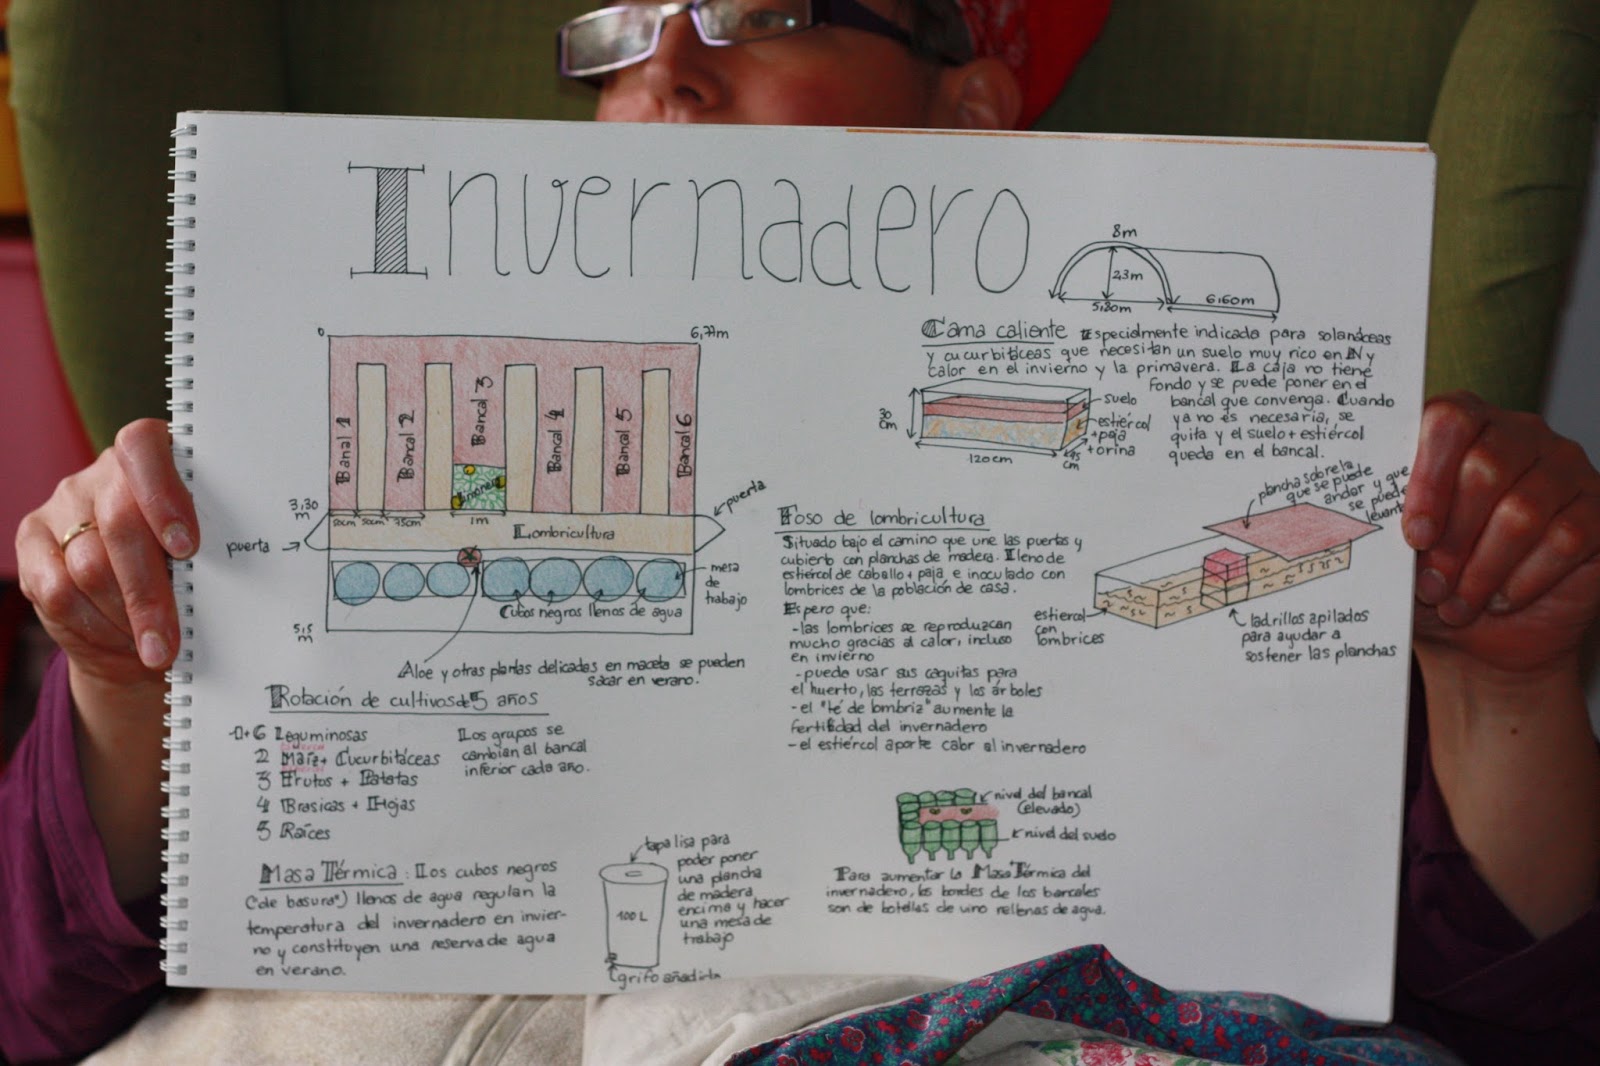 Invernadero
8m
2,3m
5,80m
6,60m
0
6,77m
Bancal 1
Bancal 2
Bancal 3
Bancal 4
Bancal 5
Bancal 6
Limonero
3,30
m
50cm
50cm
75cm
1m
puerta
puerta
Lombricultura
mesa
de
trabajo
Cubos negros llenos de agua
5,5
m
Aloe y otras plantas delicadas en maceta se pueden
sacar en verano.
Cama caliente Especialmente indicada para solanáceas
y cucurbitáceas que necesitan un suelo muy rico en N y
calor en el invierno y la primavera. La caja no tiene
fondo y se puede poner en el
bancal que convenga. Cuando
ya no es necesaria, se
quita y el suelo + estiércol
queda en el bancal.
30
cm
120cm
45
cm
suelo
estiércol
+ paja
+ orina
Foso de lombricultura
Situado bajo el camino que une las puertas y
cubierto con planchas de madera. Lleno de
estiércol de caballo + paja e inoculado con
lombrices de la población de casa.
Espero que:
- las lombrices se reproduzcan
mucho gracias al calor, incluso
en invierno
- pueda usar sus caquitas para
el huerto, las terrazas y los árboles
- el "té de lombriz" aumente la
fertilidad del invernadero
- el estiércol aporte calor al invernadero
plancha sobre la
que se puede
andar y que
se puede
estiercol
con
lombrices
ladrillos apilados
para ayudar a
sostener las planchas
Rotación de cultivos de 5 años
1+6 Leguminosas
2 Maíz + Cucurbitáceas
3 Frutos + Patatas
4 Brasicas + Hojas
5 Raíces
Los grupos se
cambian al bancal
inferior cada año.
Masa Térmica: Los cubos negros
("de basura") llenos de agua regulan la
temperatura del invernadero en invier-
no y constituyen una reserva de agua
en verano.
100 L
tapa lisa para
poder poner
una plancha
de madera
encima y hacer
una mesa de
trabajo
grifo
nivel del bancal
(elevado)
nivel del suelo
Para aumentar la Masa Térmica del
invernadero, los bordes de los bancales
son de botellas de vino rellenas de agua.